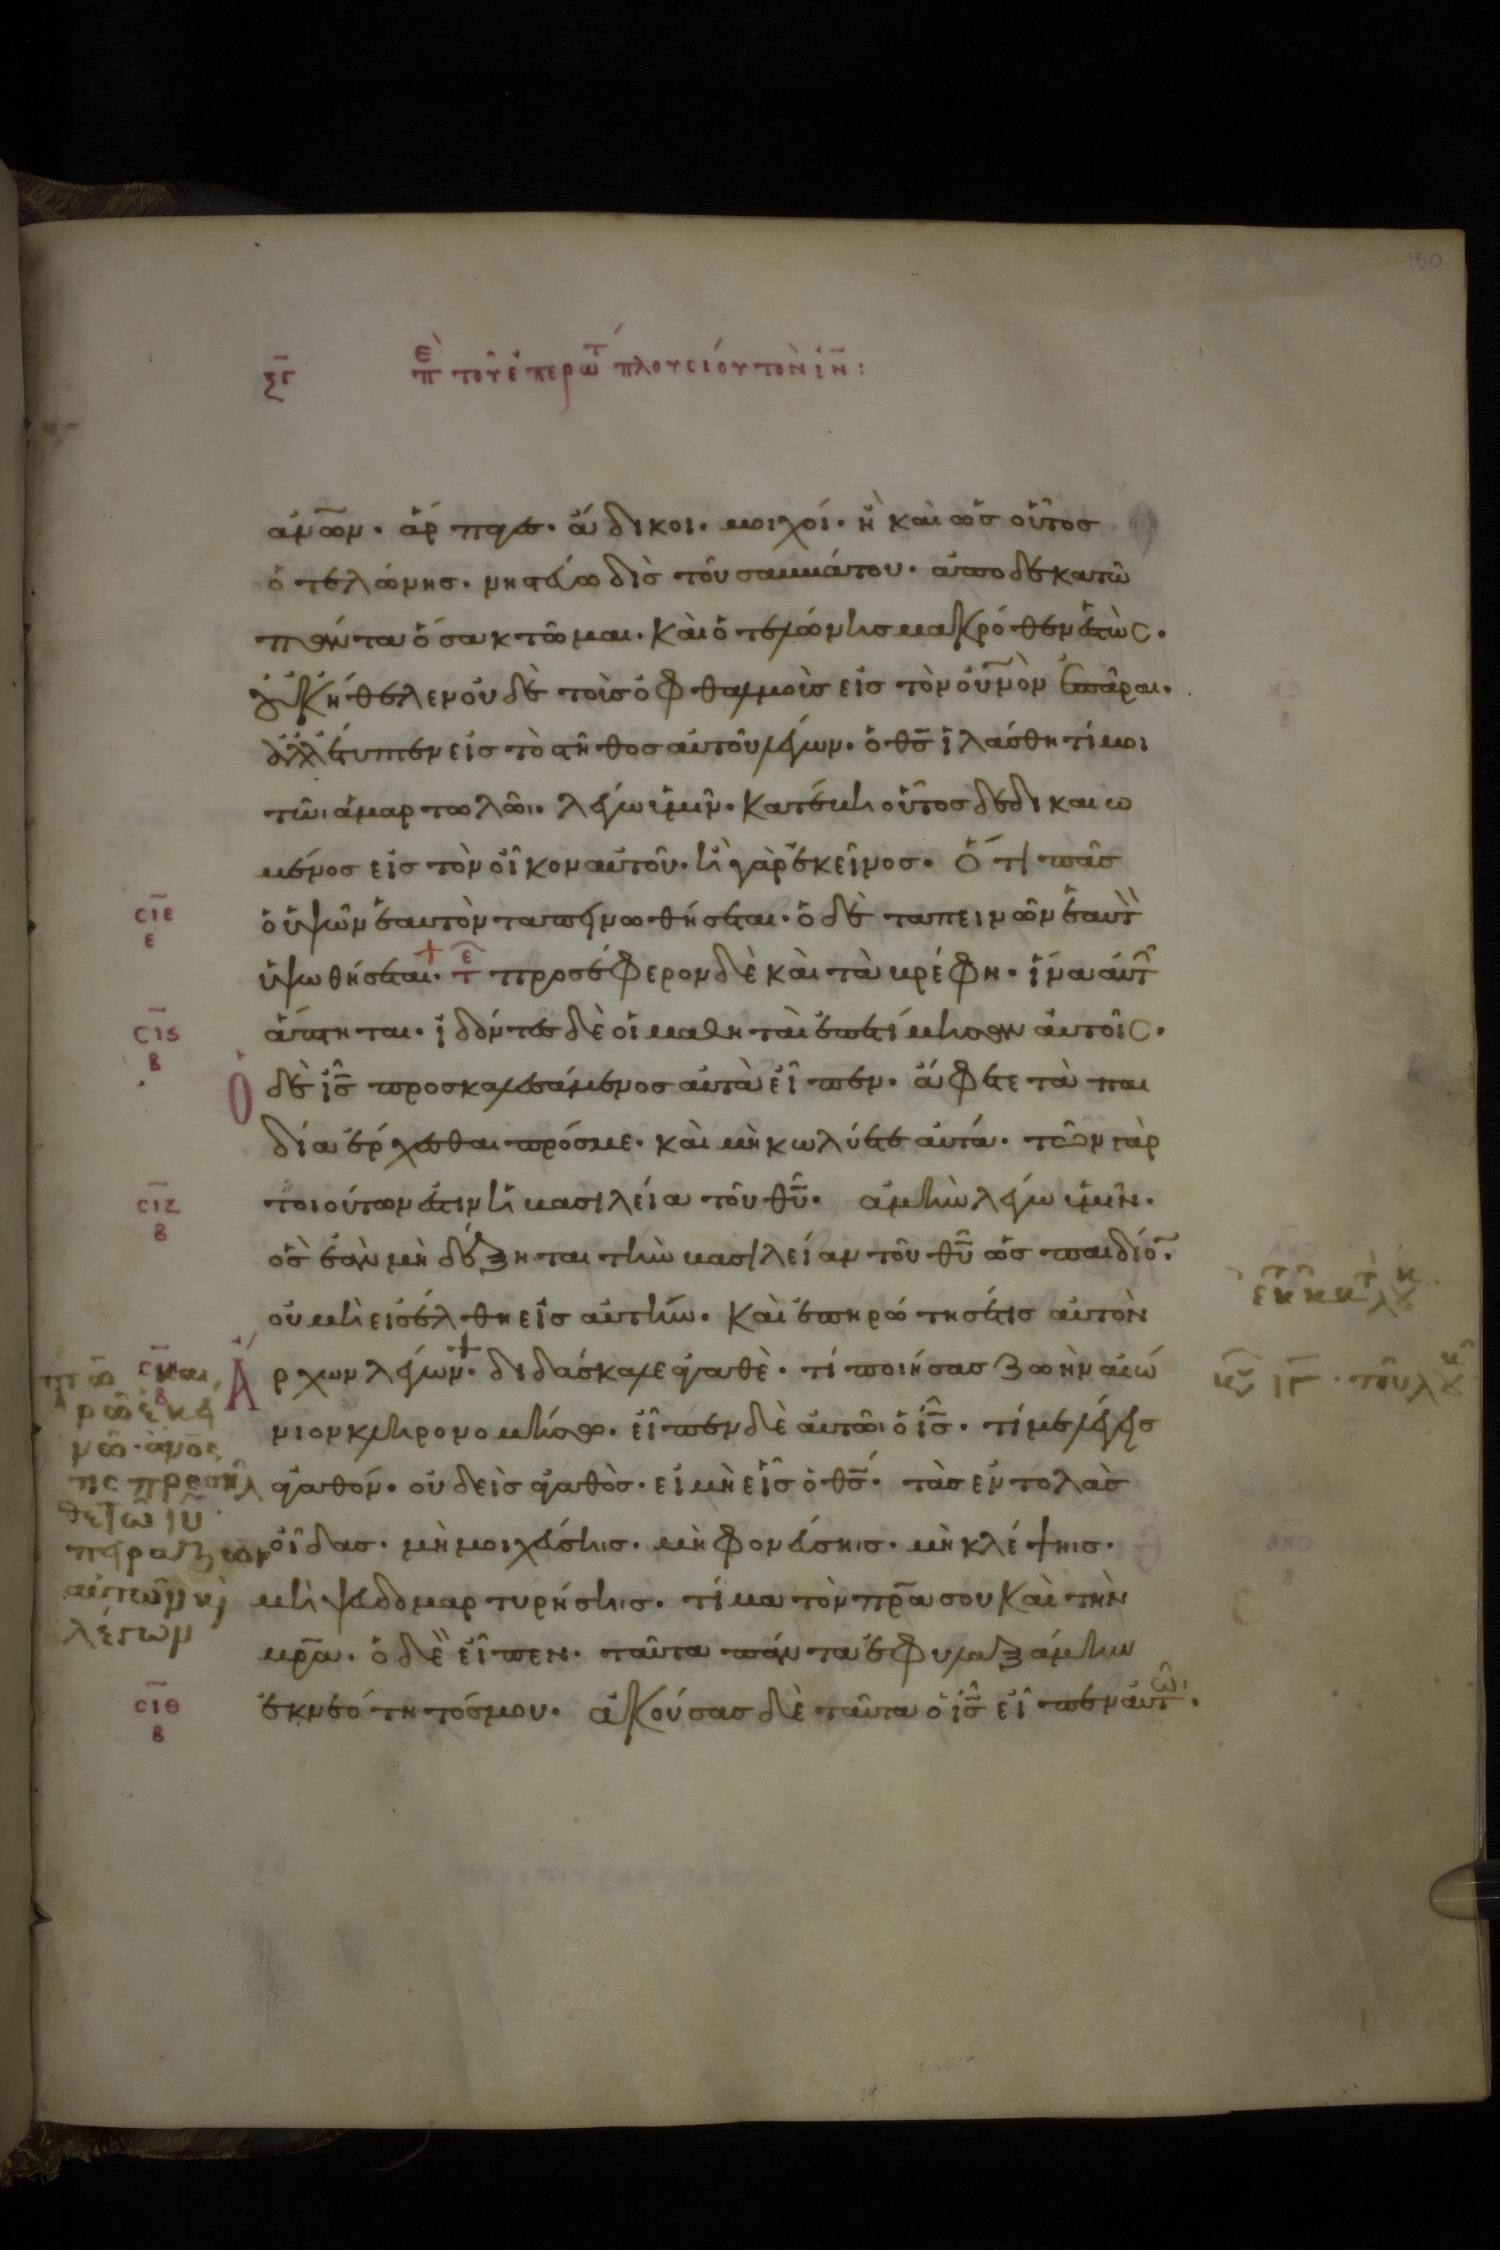 ξγ πε τοῦ ἐπερωτ πλουσίου τὸν ἰν:
ἀνων· ἅρπαγες· ἄδικοι· μοιχοί· ἢ καὶ ὡς οὗτος
ὁ τελώνης· νηστεύω δὶς τοῦ σαββάτου· ἀποδεκατῶ
πάντα ὅσα κτῶμαι. καὶ ὁ τελώνης μακρόθεν ἑστώς·
οὐκ ἤθελεν οὐδὲ τοὺς ὀφθαλμοὺς εἰς τὸν οὐνὸν ἐπᾶραι·
ἀλλ' ἔτυπτεν εἰς τὸ στῆθος αὐτοῦ λέγων· ὁ θς ἱλάσθητί μοι
τῶι ἁμαρτωλῶι. λέγω ὑμῖν· κατέβη οὗτος δεδικαιω
μένος εἰς τὸν οἶκον αὐτοῦ· ἢ γὰρ ἐκεῖνος. ὅτι πᾶς
σιε ε
ὁ ὑψῶν ἑαυτὸν ταπεινωθήσεται· ὁ δὲ ταπεινῶν ἑαυτ
ὑψωθήσεται. + τε προσέφερον δὲ καὶ τὰ βρέφη· ἵνα αὐτ
σις β
ἅπτηται· ἰδόντες δὲ οἱ μαθηταὶ ἐπετίμησαν αὐτοῖς·
Ὁ δὲ ις προσκαλεσάμενος αὐτὰ εἶπεν· ἄφετε τὰ παι
δία ἔρχεσθαι πρός με· καὶ μὴ κωλύετε αὐτά· τῶν γὰρ
σιζ β
τοιούτων ἐστὶν ἡ βασιλεία τοῦ θυ. ἀμὴν λέγω ὑμῖν·
ὃς ἐὰν μὴ δέξηται τὴν βασιλείαν τοῦ θυ ὡς παιδίο
οὐ μὴ εἰσέλθη εἰς αὐτήν. καὶ ἐπηρώτησέ τις αὐτὸν
σιη β
Ἄρχων λέγων+· διδάσκαλε ἀγαθὲ· τί ποιήσας ζωὴν αἰώ
νιον κληρονομήσω. εἶπεν δὲ αὐτῶι ὁ ις· τί με λέγεις
ἀγαθόν· οὐδεὶς ἀγαθὸς· εἰ μὴ εἷς ὁ θς. τὰς ἐντολὰς
οἶδας· μὴ μοιχεύσης· μὴ φονεύσηις· μὴ κλέψηις·
μὴ ψευδομαρτυρήσηις· τίμα τὸν πρα σου καὶ τὴν
μρα. ὁ δὲ εἶπεν· ταῦτα πάντα ἐφυλαξάμην
σιθ β
ἐκ νεότητός μου. ἀκούσας δὲ ταῦτα ὁ ις εἶπεν αὐτῶ·
τω και
ρῶ ἐκεί
νω· ἀνος
τις προσηλ
θε τῶ ιυ
πειράζων
αὐτὸν κὶ
λέγων
κυ ιγ· τοῦ λου